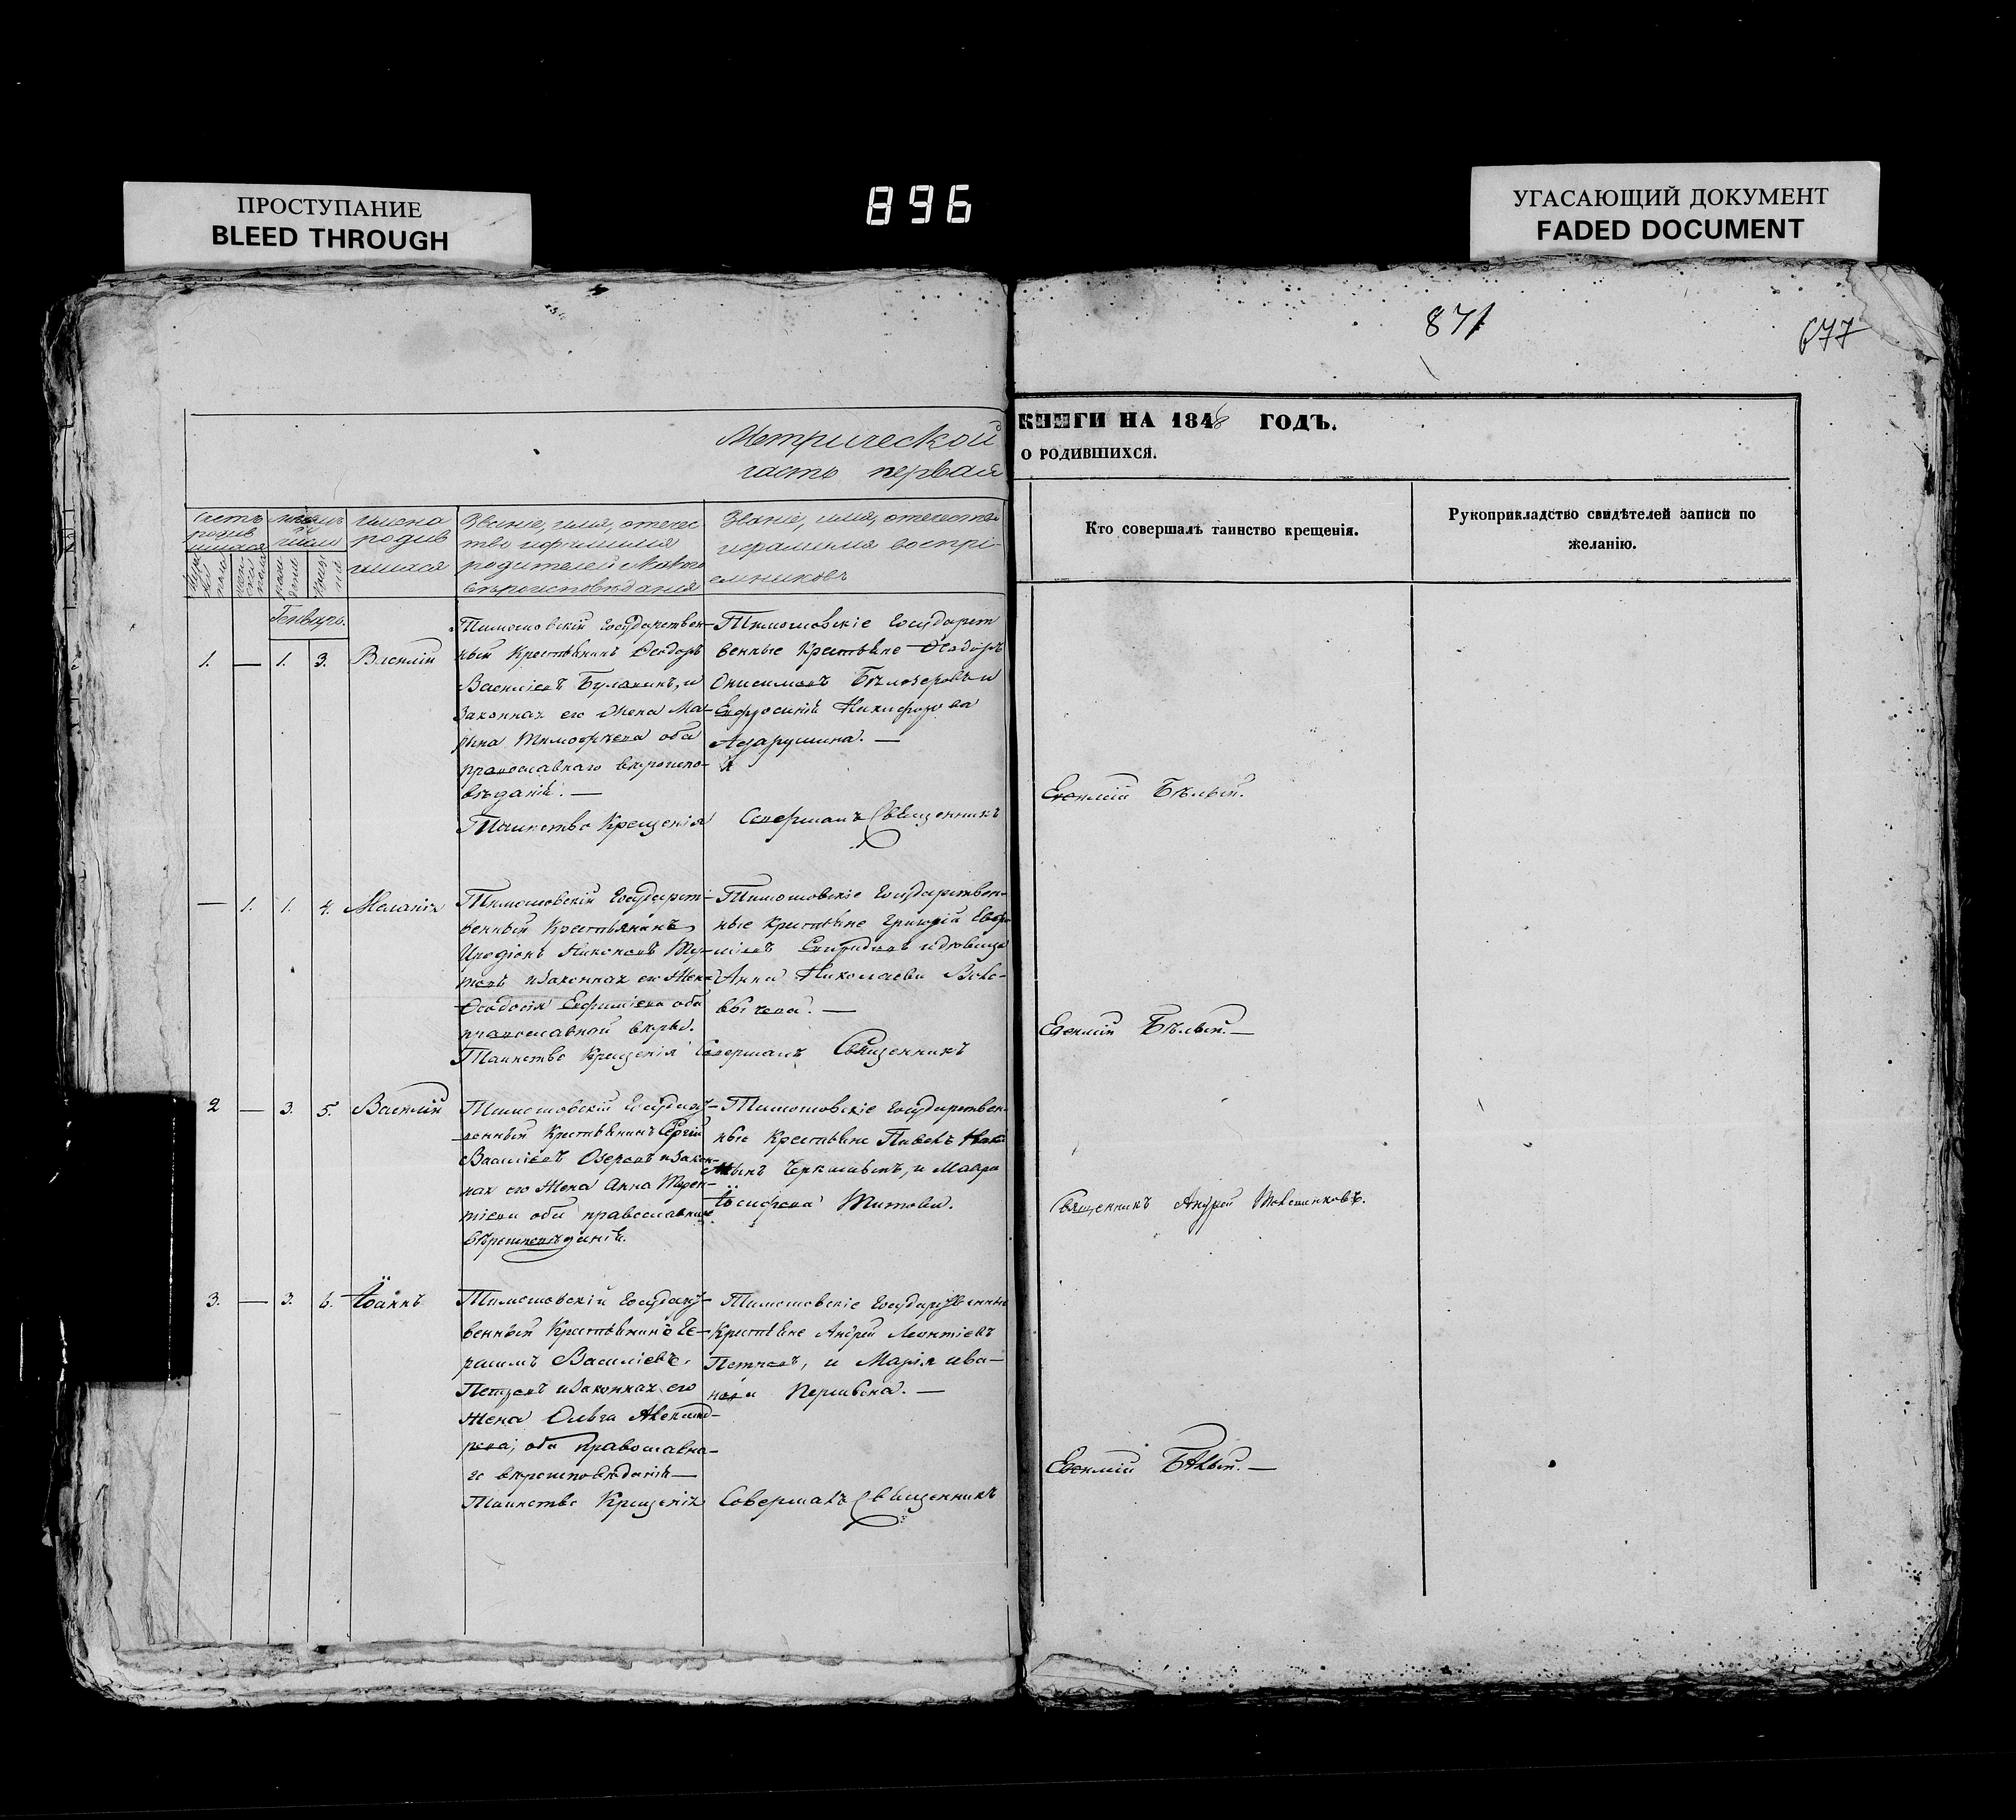 ПРОСТУПАНИЕ
BLEED THROUGH
896
УГАСАЮЩИЙ ДОКУМЕНТ
FADED DOCUMENT
871
677
Метрической
часть первая
КНИГИ НА 1848 ГОДЪ.
О РОДИВШИХСЯ.
имена
родив
шихся
Званіе, имя, отечес
тво и фамилія
родителей и какого
вѣроисповѣданія
Званіе, имя, отечество
и фамилія воспрі-
емниковъ
Кто совершалъ таинство крещенія.
Рукоприкладство свидѣтелей записи по
желанію.
Генварь.
1. — 1. 3. Василій
Тимошовскій Государствен-
ный Крестьянинъ Ѳеодоръ
Василіевъ Булакинъ, и
Законная его Жена Ма-
рына Тимофѣева оба
православнаго вѣроиспо-
вѣданія. —
Таинство Крещенія
Тимошовскіе Государст
венные Крестьяне Ѳеодоръ
Онисимовъ Бѣлозеровъ и
Евфросинія Никифорова
Азарушина. —
Совершалъ Священникъ
Евѳимій Бѣлый.
— 1. 1. 4. Меланія
Тимошовскій Государст-
венный Крестьянинъ
Иродіонъ
и Законная его Жена
Ѳеодосія Евфиміева оба
православной вѣры.
Таинство Крещенія
Тимошовскіе Государствен-
ные Крестьяне Григорій
и дѣвица
Анна Николаева
Совершалъ Священникъ
Евѳимій Бѣлый. —
2 — 3. 5. Василій
Тимошовскій
Крестьянинъ Сергій
Василіевъ Озеровъ и закон-
ная его Жена Анна Терен-
тіева оба православнаго
вѣроисповѣданія.
Тимошовскіе Государствен-
ные Крестьяне Павелъ
и Мавра
Іосифова Титова.
Священникъ Андрей
3. — 3. 6. Іоаннъ
Тимошовскій
венный Крестьянинъ Ге-
расимъ Василіевъ
Петровъ и Законная его
Жена Ольга Александ-
рова, оба православна-
го вѣроисповѣданія —
Таинство Крещенія
Тимошовскіе Государственные
Крестьяне Андрей Леонтіевъ
Петровъ, и Марія Ива-
нова —
Совершалъ Священникъ
Евѳимій Бѣлый. —